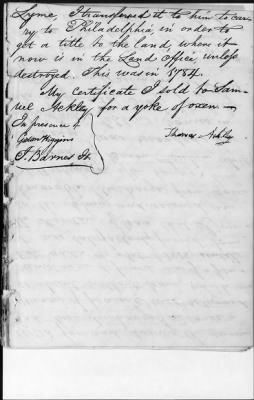 Lyme I transferred it to him to car-
ry to Philadelphia in order to
get a title to the land, where it
now is in the Land Office, unless
destroyed. This was in 1784.
My certificate I sold to Sam-
uel Ackley for a yoke of oxen —
In presence of
Higgins
Thomas Ackley
J. Barnes